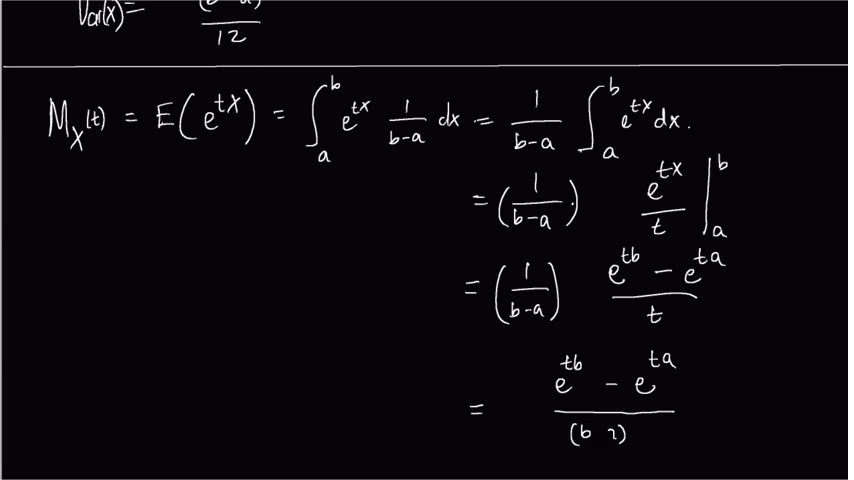 Var(x)=
12
M_X(t) = E(e^{tX}) = ∫_a^b e^{tx} 1/(b-a) dx = 1/(b-a) ∫_a^b e^{tx} dx.
= (1/(b-a)) e^{tx}/t |_a^b
= (1/(b-a)) (e^{tb} - e^{ta})/t
= e^{tb} - e^{ta}
(b